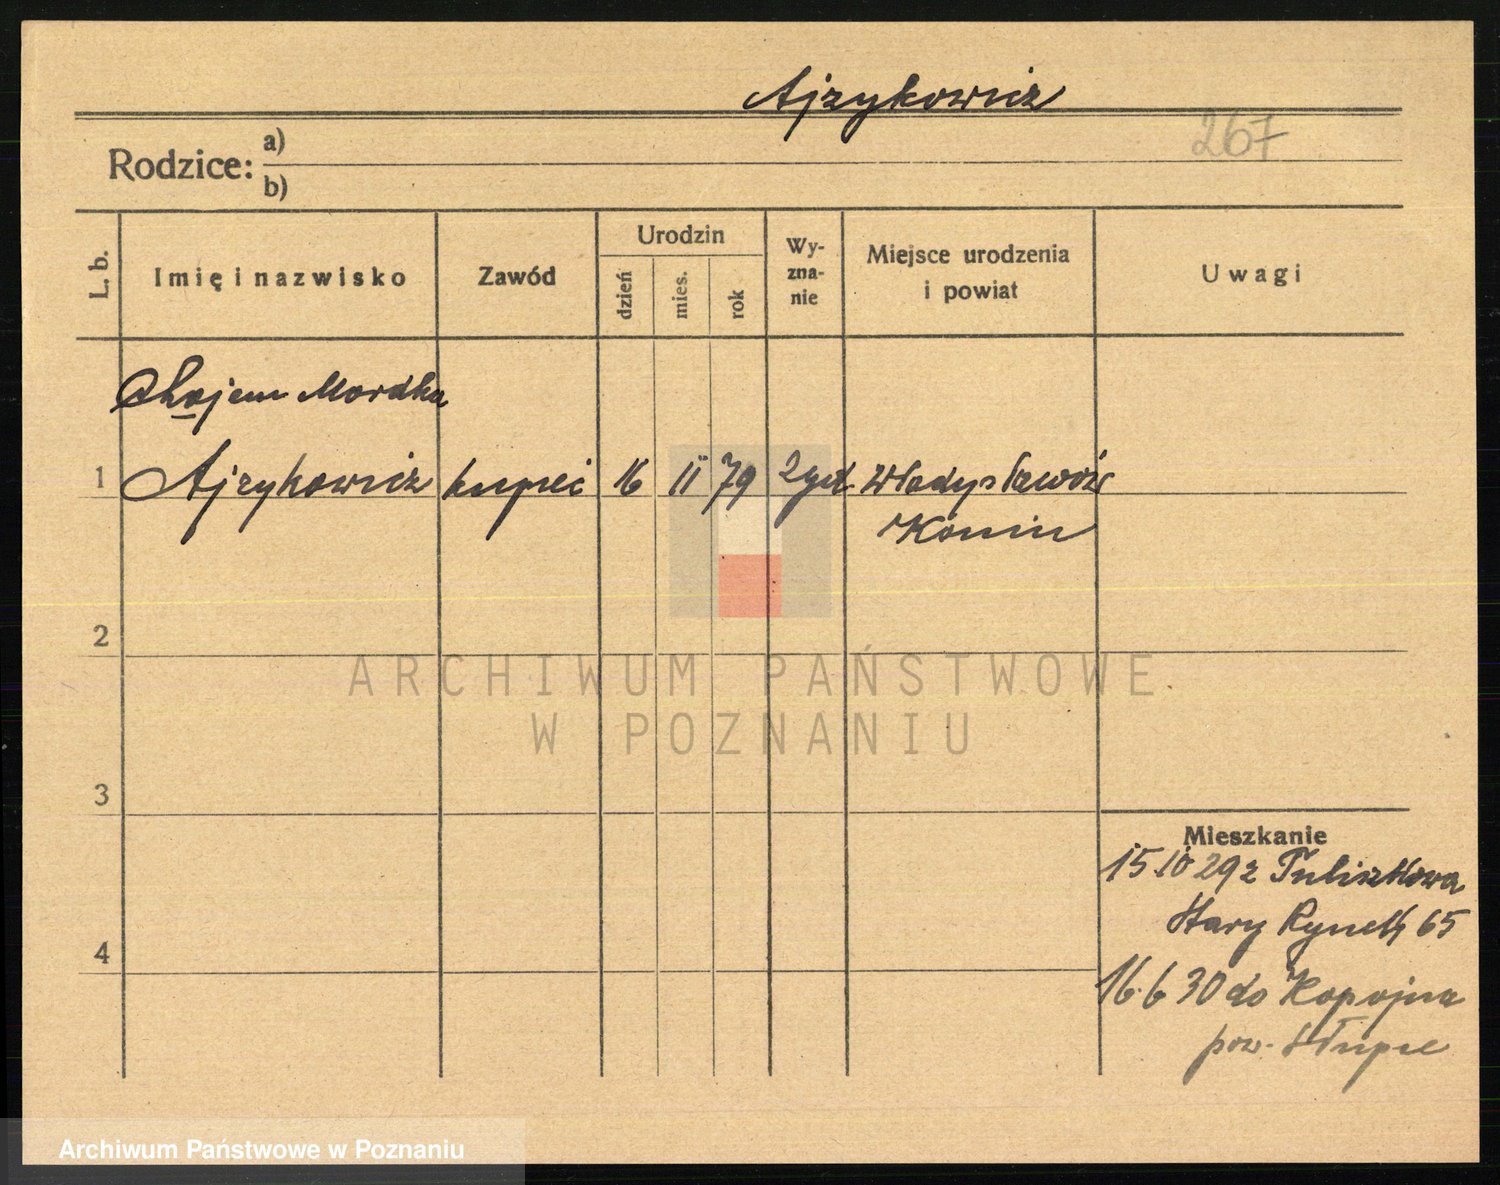 Ajzykowicz
267
Rodzice: a)
b)
L. b.
Imię i nazwisko
Zawód
Urodzin
dzień
mies.
rok
Wy-
zna-
nie
Miejsce urodzenia
i powiat
Uwagi
Chajem Mordka
1 Ajzykowicz kupiec 16 II 79 żyd. Władysławów
Konin
2
3
4
Mieszkanie
15.10 29 z Tuliszkowa
Stary Rynek 65
16.6 30 do Kopojna
pow. Słupce
ARCHIWUM PAŃSTWOWE
W POZNANIU
Archiwum Państwowe w Poznaniu